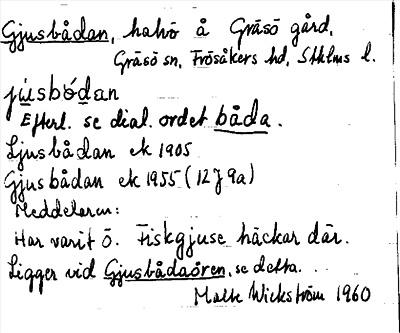 Gjusbådan, halvö å Gräsö gård,
Gräsö sn, Frösåkers hd, Sthlms l.
jusbódan
Efterl. se dial. ordet båda.
Ljusbådan ek 1905
Gjusbådan ek 1955 (12J 9a)
Meddelaren:
Har varit ö. Fiskgjuse häckar där.
Ligger vid Gjusbådaören, se detta.
Malte Wickström 1960